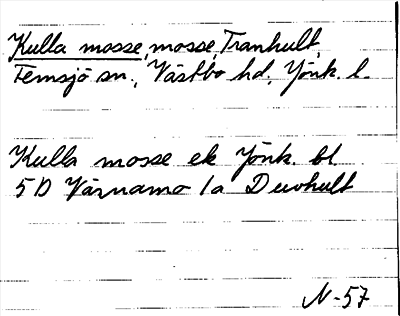 Kulla mosse, mosse, Tranhult,
Femsjö sn., Västbo hd, Jönk. l.
Kulla mosse ek Jönk. bl
5D Värnamo 1a Duvhult
N-57